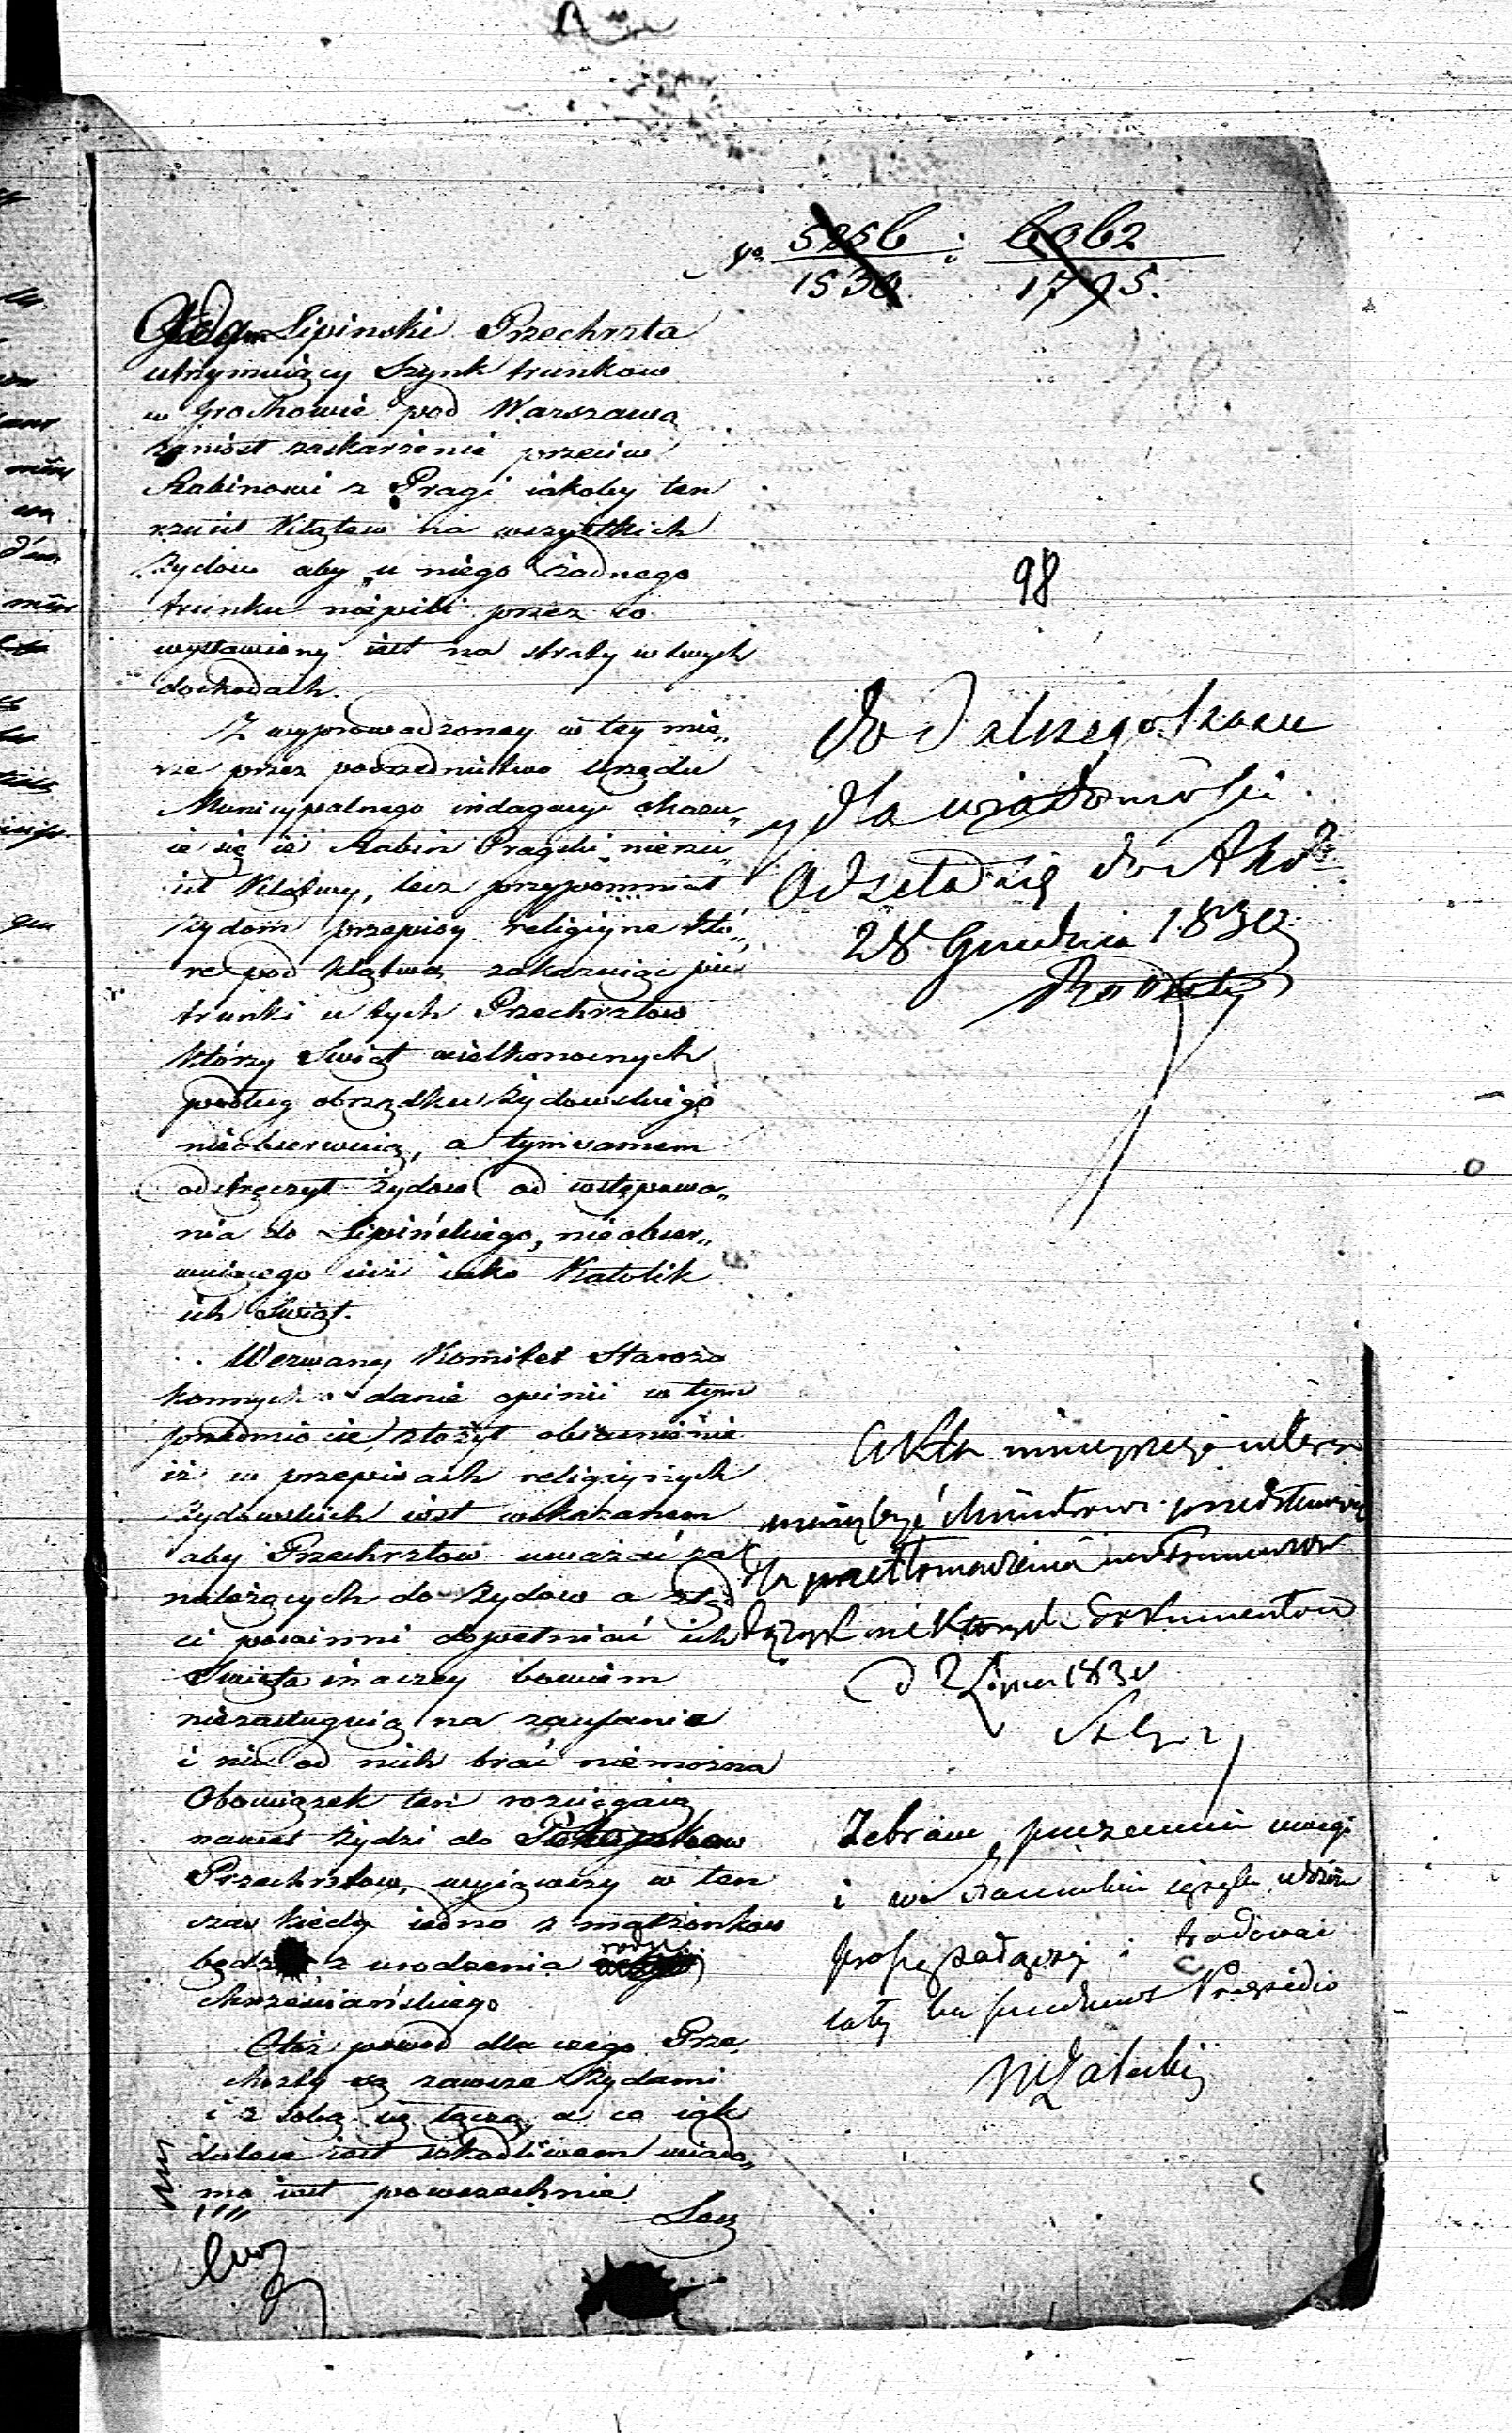 No 5256 / 1530 i 6062 / 1795.
98
Lipinski Przechrzta
utrzymuiący Szynk trunkow
w Grochowie pod Warszawą
zaniosł zaskarżenie przeciw
Rabinowi z Pragi iakoby ten
rzucił Klątew na wszystkich
Żydow aby u niego żadnego
trunku niepili przez co
wystawiony iest na straty w swych
dochodach.
Z wyprowadzoney w tey mie„
rze przez pośrednictwo Urzędu
Municypalnego indagacyi okazu„
ie się iż Rabin Pragski nierzu„
cił Klątwy, lecz przypomniał
Żydom przepisy religiyne któ„
re pod klątwą zakazuią pić
trunki u tych Przechrztow
którzy Swiąt wielkonocnych
podług obrządku Żydowskiego
nieobserwuią, a tymsamem
odstręczył Żydow od wstępowa„
nia do Lipińskiego, nieobser„
wuiącego iuż iako Katolik
ich Swiąt.
Wezwany Komitet Staroza
konnych o danie opinii w tym
przedmiocie, złożył obiasnienie
iż w przepisach religiynych
Żydowskich iest wskazanem
aby Przechrztow uważać za
należących do Żydow a ztąd
ci powinni dopełniać ich
Swięta inaczey bowiem
niezasługuią na zaufanie
i nic od nich brać niemożna
Obowiązek ten rosciągaią
nawet Żydzi do
Przechrztow, wyiąwszy w ten
czas kiedy iedno z małżonkow
będzie z urodzenia rodu
chrzesciańskiego
Otoż powod dla czego Prze„
chrzty są zawsze Żydami
i z sobą się łączą, a co iak
dalece iest szkodliwem wiado„
mo iest powszechnie
Lecz
do dalszego
y dla wiadomości
odseła się do
28 Grudnia 1830
Akta ninieyszego
muszą być przedstawione
dla przetłomaczenia
język niektorych dokumentow
d 2 Lipca 1830
Zebrane uwagi
i w francuzkim ięzyku
proszę i
Załuski